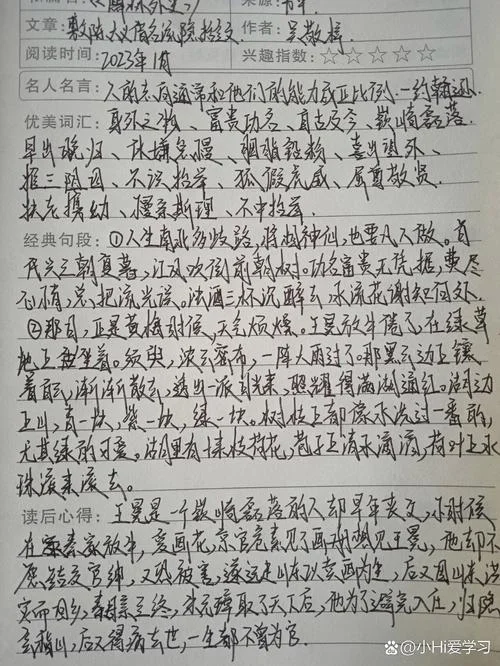 《儒林外史》
文章： 敷陈大义 借名流隐括全文 作者：吴敬梓
阅读时间： 2023年1月 兴趣指数：☆☆☆☆☆
名人名言： 人的志向通常和他们的能力成正比例.—约翰逊
优美词汇： 身外之物、富贵功名、自古及今、嵚崎磊落
早出晚归、怠慢、胭脂、喜出望外、
推三阻四、不识抬举、狐假虎威、屈尊敬贤、
扶老携幼、慢条斯理、不中抬举.
经典句段： ①人生南北多歧路,将相神仙,也要凡人做。百
代兴亡朝复暮,江风吹倒前朝树。功名富贵无凭据,费尽
心情,总把流光误。浊酒三杯沉醉去,水流花谢知何处.
②那日,正是黄梅时候,天气烦燥。王冕放牛倦了,在绿草
地上坐着。须臾,浓云密布,一阵大雨过了。那黑云边上镶
着白云,渐渐散去,透出一派日光来,照耀得满湖通红。湖边
上山,青一块,紫一块,绿一块。树枝上都像水洗过一番的,
尤其绿的可爱。湖里有十来枝荷花,苞子上清水滴滴,荷叶上水
珠滚来滚去。
读后心得： 王冕是一个嵚崎磊落的人却早年丧父,小时候
在秦家放牛,爱画花,京官危素见了画想见王冕,他却不
愿结交官绅,又恐被害,逐远走山东以卖画为生,后又因
而回乡,母亲亡终,朱元璋取了天下后,他为了避免入仕,归隐
会稽山,后又得病去世,一生都不曾为官.
@小Hi爱学习